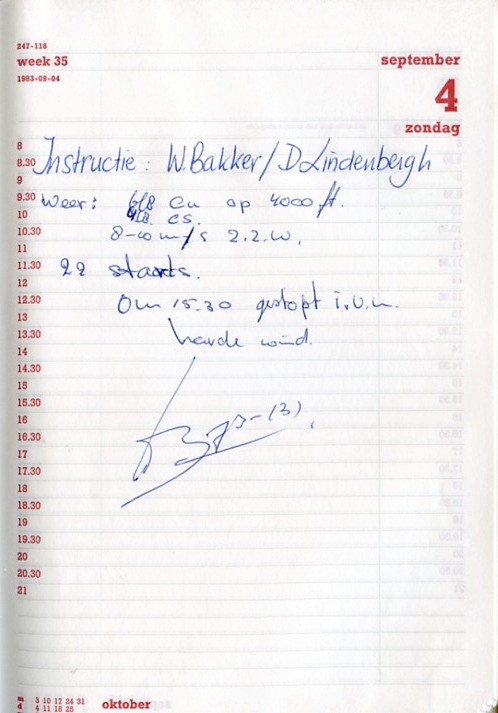 247-118
week 35
1983-09-04
september
4
zondag
8
8.30 Instructie: W. Bakker / D Lindenbergh
9
9.30 Weer: 6/8 Cu op 4000 ft.
10 4/8 cs.
10.30 8-10 m/s Z.Z.W.
11
11.30 22 starts.
12
12.30 Om 15.30 gestopt i.v.m.
13
13.30 harde wind.
14
14.30
15
15.30
16
16.30
17
17.30
18
18.30
19
19.30
20
20.30
21
m 3 10 17 24 31
d 4 11 18 25
oktober